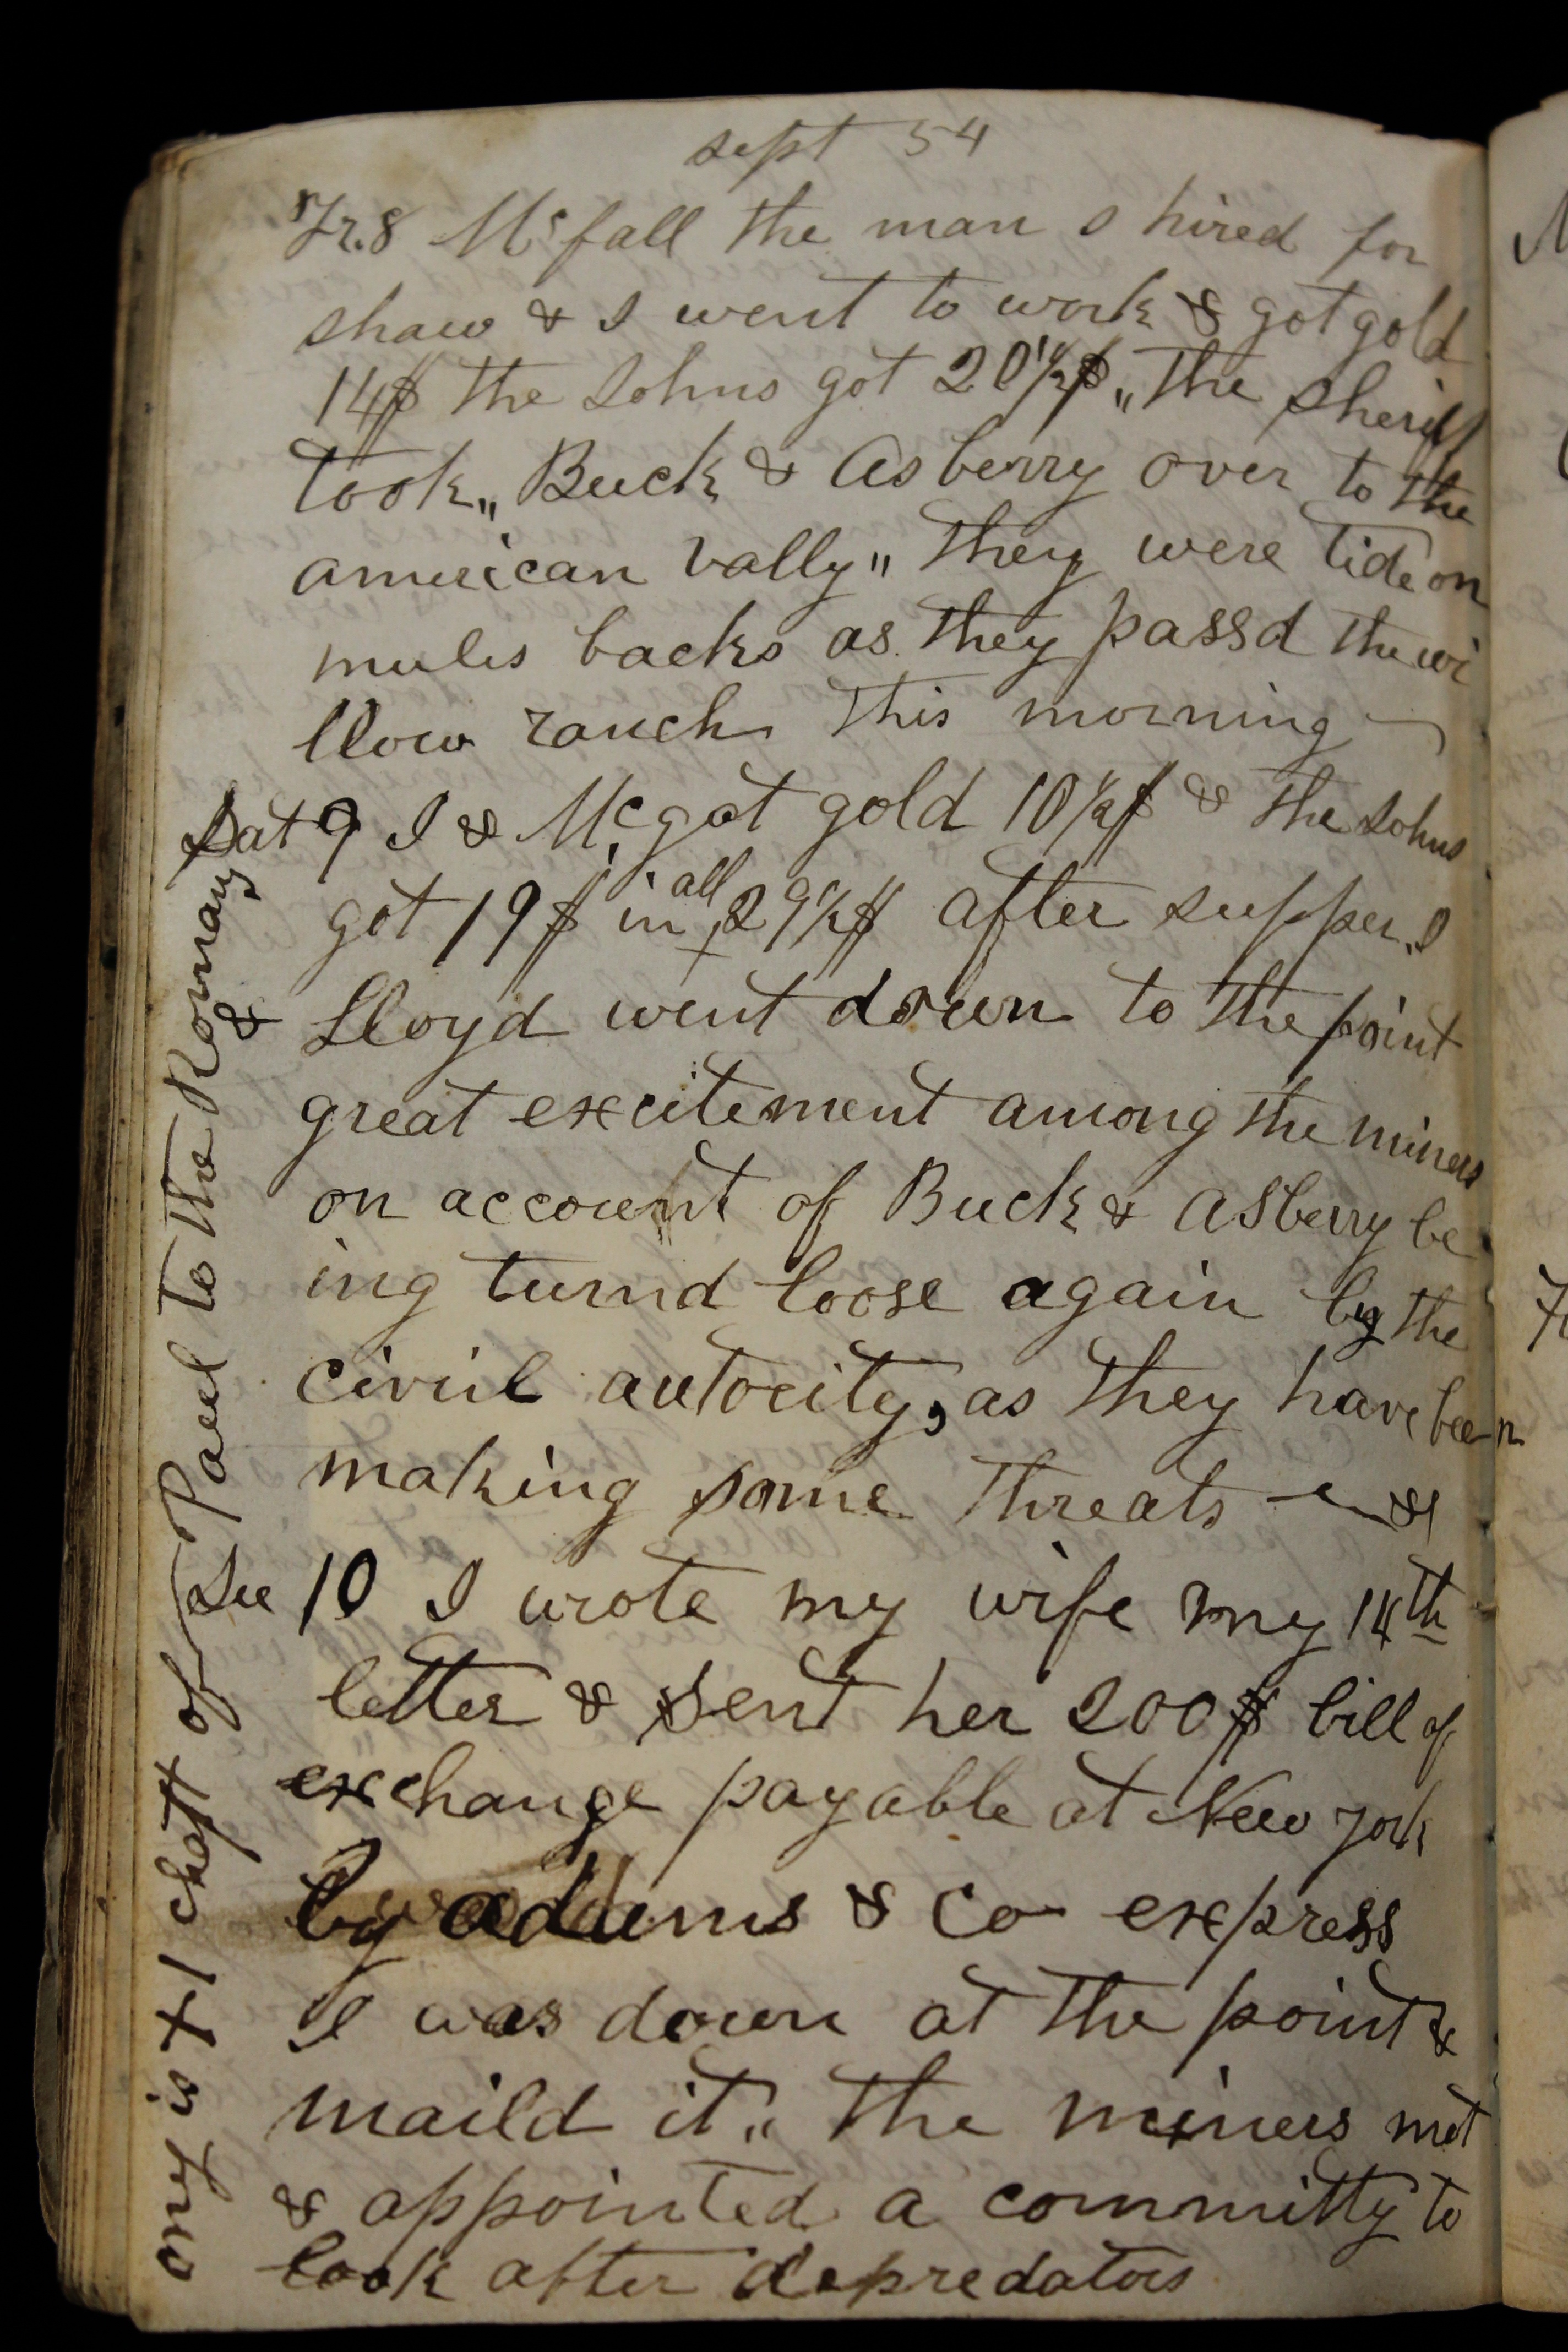 sept 54
Fr. 8 Mcfall the man I hired for
shaw & I went to work & got gold
14$ the Johns got 20½$ „ the sheriff
took „ Buck & Asberry over to the
american vally „ they were tide on
mules backs as they passd the wi
llow ranch this morning
Sat 9 I & Mc got gold 10½$ & the Johns
got 19$ in all 29½$ after supper I
& Lloyd went down to the point
great excitement among the miners
on account of Buck & Asberry be
ing turnd loose again by the
civiil autority, as they have been
making some threats
10 I wrote my wife my 14th
letter & sent her 200$ bill of
exchange payable at New york
by adums & Co express
I was down at the point &
maild it „ the miners met
& appointed a committy to
look after depredators
See
ony is +1 chapt of Paul to the Romans